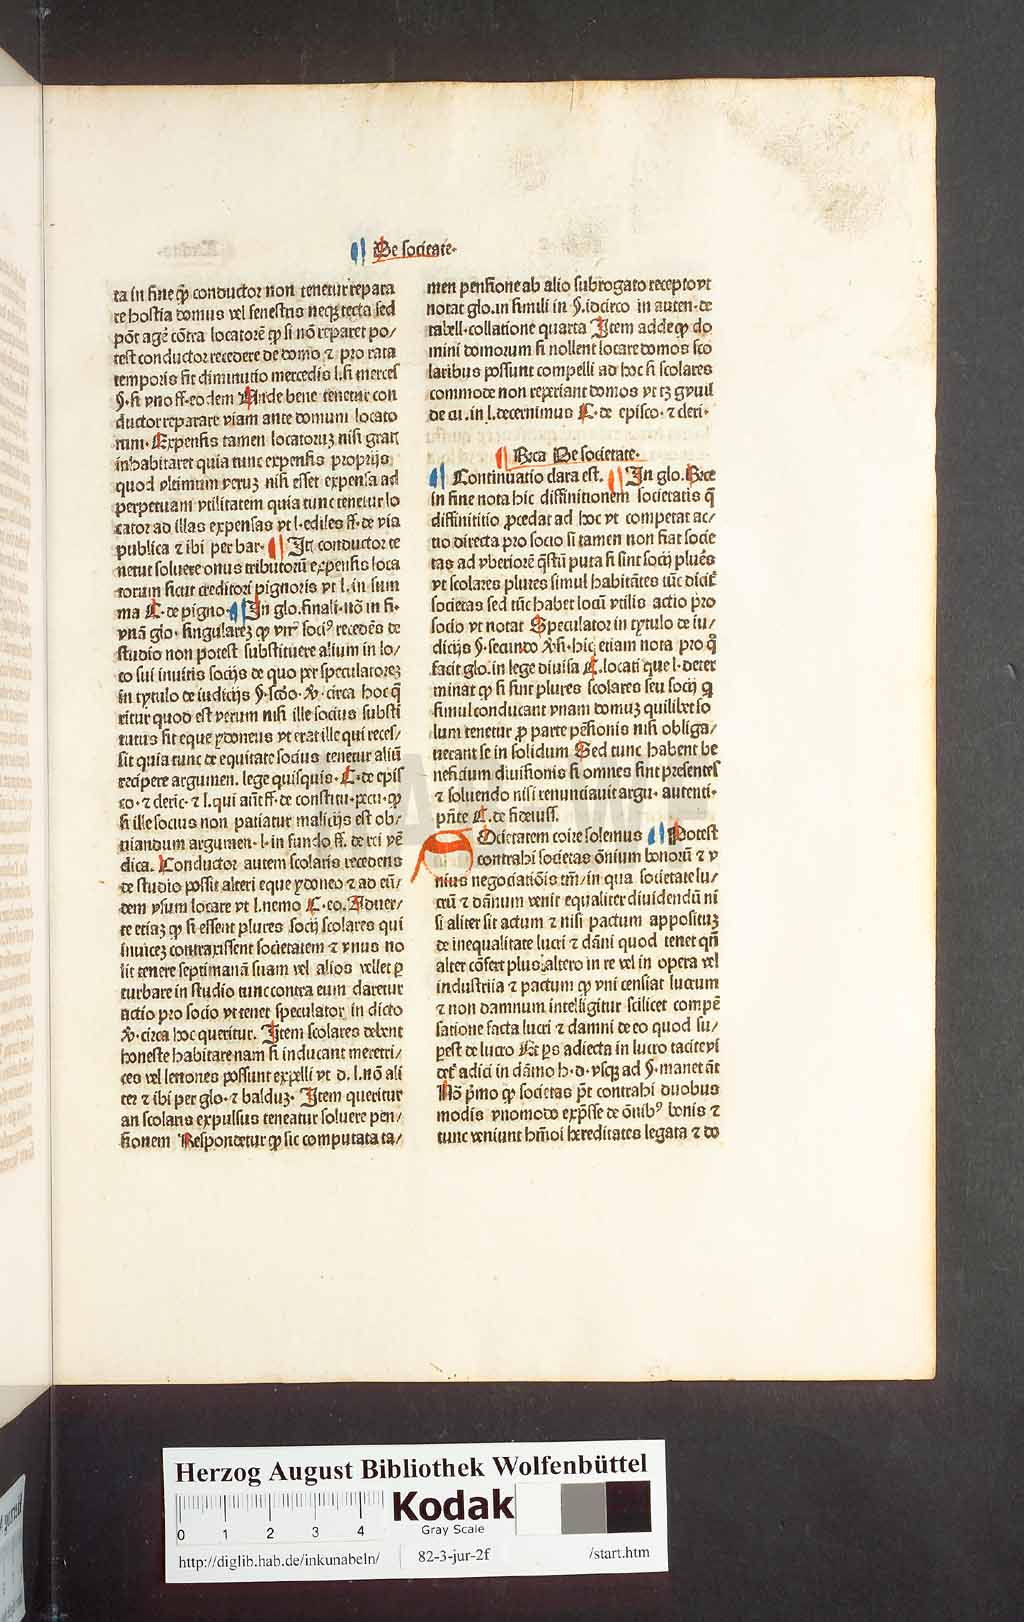 De societate.
ta in fine ꝙ̃ conductor non tenetur repara
re hostia domus vel fenestris necꝫ tecta sed
põt agẽ cõtra locatorẽ ꝙ si nõ reparet po/
test conductor recedere de domo ⁊ pro rata
temporis fit diminutio mercedis l. si merces
§. si vno ff. eodem Unde bene tenetur con
ductor reparare viam ante domum locato
rum. Expensis tamen locatoruꝫ nisi gratꝭ
inhabitaret quia tunc expensis proprijs
quod vltimum veruꝫ nisi esset expensa ad
perpetuam vtilitatem quia tunc tenetur lo
cator ad illas expensas vt l. ediles ff. de via
publica ⁊ ibi per bar. Itẽ conductor te
netur soluere onus tributorũ expensis loca
torum sicut creditori pignoris vt l. in sum
ma C. de pigno. In glo. finali. nõ in fi.
vnã glo. singulareꝫ ꝙ vnꝰ sociꝰ recedẽs de
studio non potest substituere alium in lo/
co sui inuitis socijs de quo per speculatoreꝫ
in tytulo de iudicijs §. scđo. ꝟ. circa hoc q̃
ritur quod est verum nisi ille socius substi
tutus sit eque ydoneus vt erat ille qui reces/
sit quia tunc de equitate socius tenetur aliũ
recipere argumen. lege quisquis. C. de epis
co. ⁊ cleric. ⁊ l. qui aũt ff. de constitu. pecu. ꝙ
si ille socius non patiatur malicijs est ob/
uiandum argumen. l. in fundo ff. de rei vẽ
dica. Conductor autem scolaris recedens
de studio possit alteri eque ydoneo ⁊ ad eũ/
dem vsum locare vt l. nemo C. eo. Aduer/
te etiaꝫ ꝙ si essent plures socij scolares qui
inuiceꝫ contraxissent societatem ⁊ vnus no
lit tenere septimanã suam vel alios vellet ꝑ
turbare in studio tunc contra eum daretur
actio pro socio vt tenet speculator in dicto
ꝟ. circa hoc queritur. Item scolares debent
honeste habitare nam si inducant meretri/
ces vel lenones possunt expelli vt d. l. nõ ali
ter ⁊ ibi per glo. ⁊ balduꝫ. Item queritur
an scolaris expulsus teneatur soluere pen/
sionem Respondetur ꝙ sic computata ta/
men pensione ab alio subrogato recepto vt
notat glo. in simili in §. idcirco in auten. de
tabell. collatione quarta Item adde ꝙ do
mini domorum si nollent locare domos sco
laribus possunt compelli ad hoc si scolares
commode non reperiant domos vt tꝫ guil
de cu. in l. decernimus C. de episco. ⁊ cleri.
Brica De societate.
Continuatio clara est. In glo. Bice
in fine nota hic diffinitionem societatis q̃
diffinititio ꝓcedat ad hoc vt competat ac/
tio directa pro socio si tamen non fiat socie
tas ad vberiorẽ q̃stũ puta si sint socij plues
vt scolares plures simul habitãtes tũc dicit᷑
societas sed tũc habet locũ vtilis actio pro
socio vt notat Speculator in tytulo de iu/
dicijs §. secundo ꝟ. fi. hic etiam nota pro q̃
facit glo. in lege diuisa C. locati que l. deter
minat ꝙ si sunt plures scolares seu socij q
simul conducant vnam domuꝫ quilibet so
lum tenetur ꝓ parte pẽsionis nisi obliga/
uerant se in solidum Sed tunc habent be
neficium diuisionis si omnes sint presentes
⁊ soluendo nisi renunciauit argu. autenti.
pñte C. de fideiuss.
Ocietatem coire solemus Potest
contrahi societas õnium bonorũ ⁊ v
nius negociatiõis tm̃/in qua societate lu/
crũ ⁊ dãnum venit equaliter diuidendũ ni
si aliter sit actum ⁊ nisi pactum appositũꝫ
de inequalitate lucri ⁊ dãni quod tenet qñ
alter cõfert plus altero in re vel in opera vel
industriia ⁊ pactum ꝙ vni censiat lucrum
⁊ non damnum intelligitur scilicet compẽ
satione facta lucri ⁊ damni de eo quod su/
ꝑest de lucro Et ꝑs adiecta in lucro tacite vi
det᷑ adici in dãno h. d. vsqꝫ ad §. manet ãt
Nõ p̃mo ꝙ societas põt contrahi duobus
modis vnomodo exp̃sse de õnibꝰ bonis ⁊
tunc veniunt hm̃oi hereditates legata ⁊ do
Herzog August Bibliothek Wolfenbüttel
0 1 2 3 4
Kodak
Gray Scale
http://diglib.hab.de/inkunabeln/ 82-3-jur-2f /start.htm